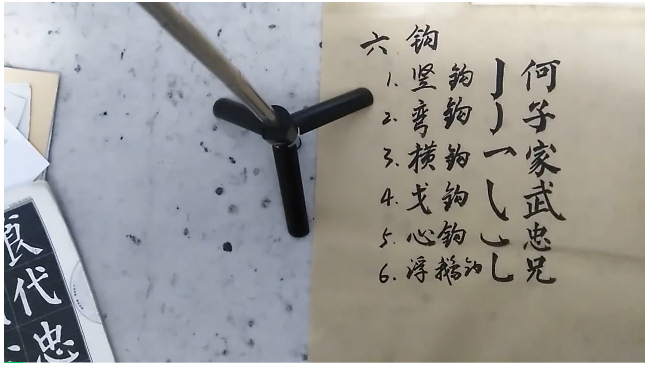 六 钩
1. 竖钩 亅 何
2. 弯钩 ㇁ 子
3. 横钩 ㇖ 家
4. 戈钩 ㇂ 武
5. 心钩 ㇃ 忠
6. 浮鹅钩 乚 兄
良
代
忠